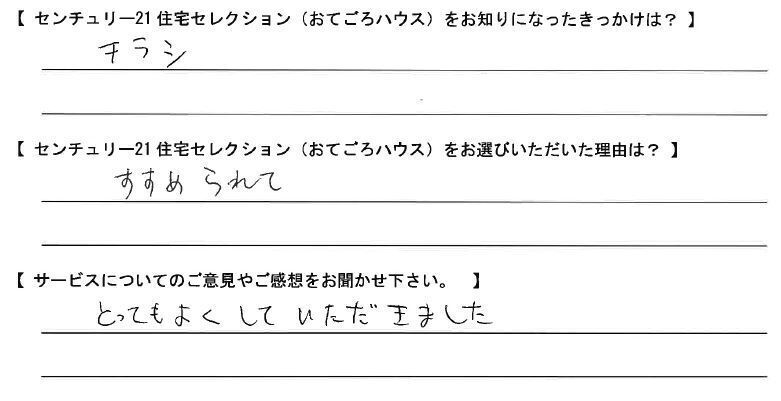 【 センチュリー21 住宅セレクション（おてごろハウス）をお知りになったきっかけは？ 】
チラシ
【 センチュリー21 住宅セレクション（おてごろハウス）をお選びいただいた理由は？ 】
すすめられて
【 サービスについてのご意見やご感想をお聞かせ下さい。 】
とってもよくしていただきました